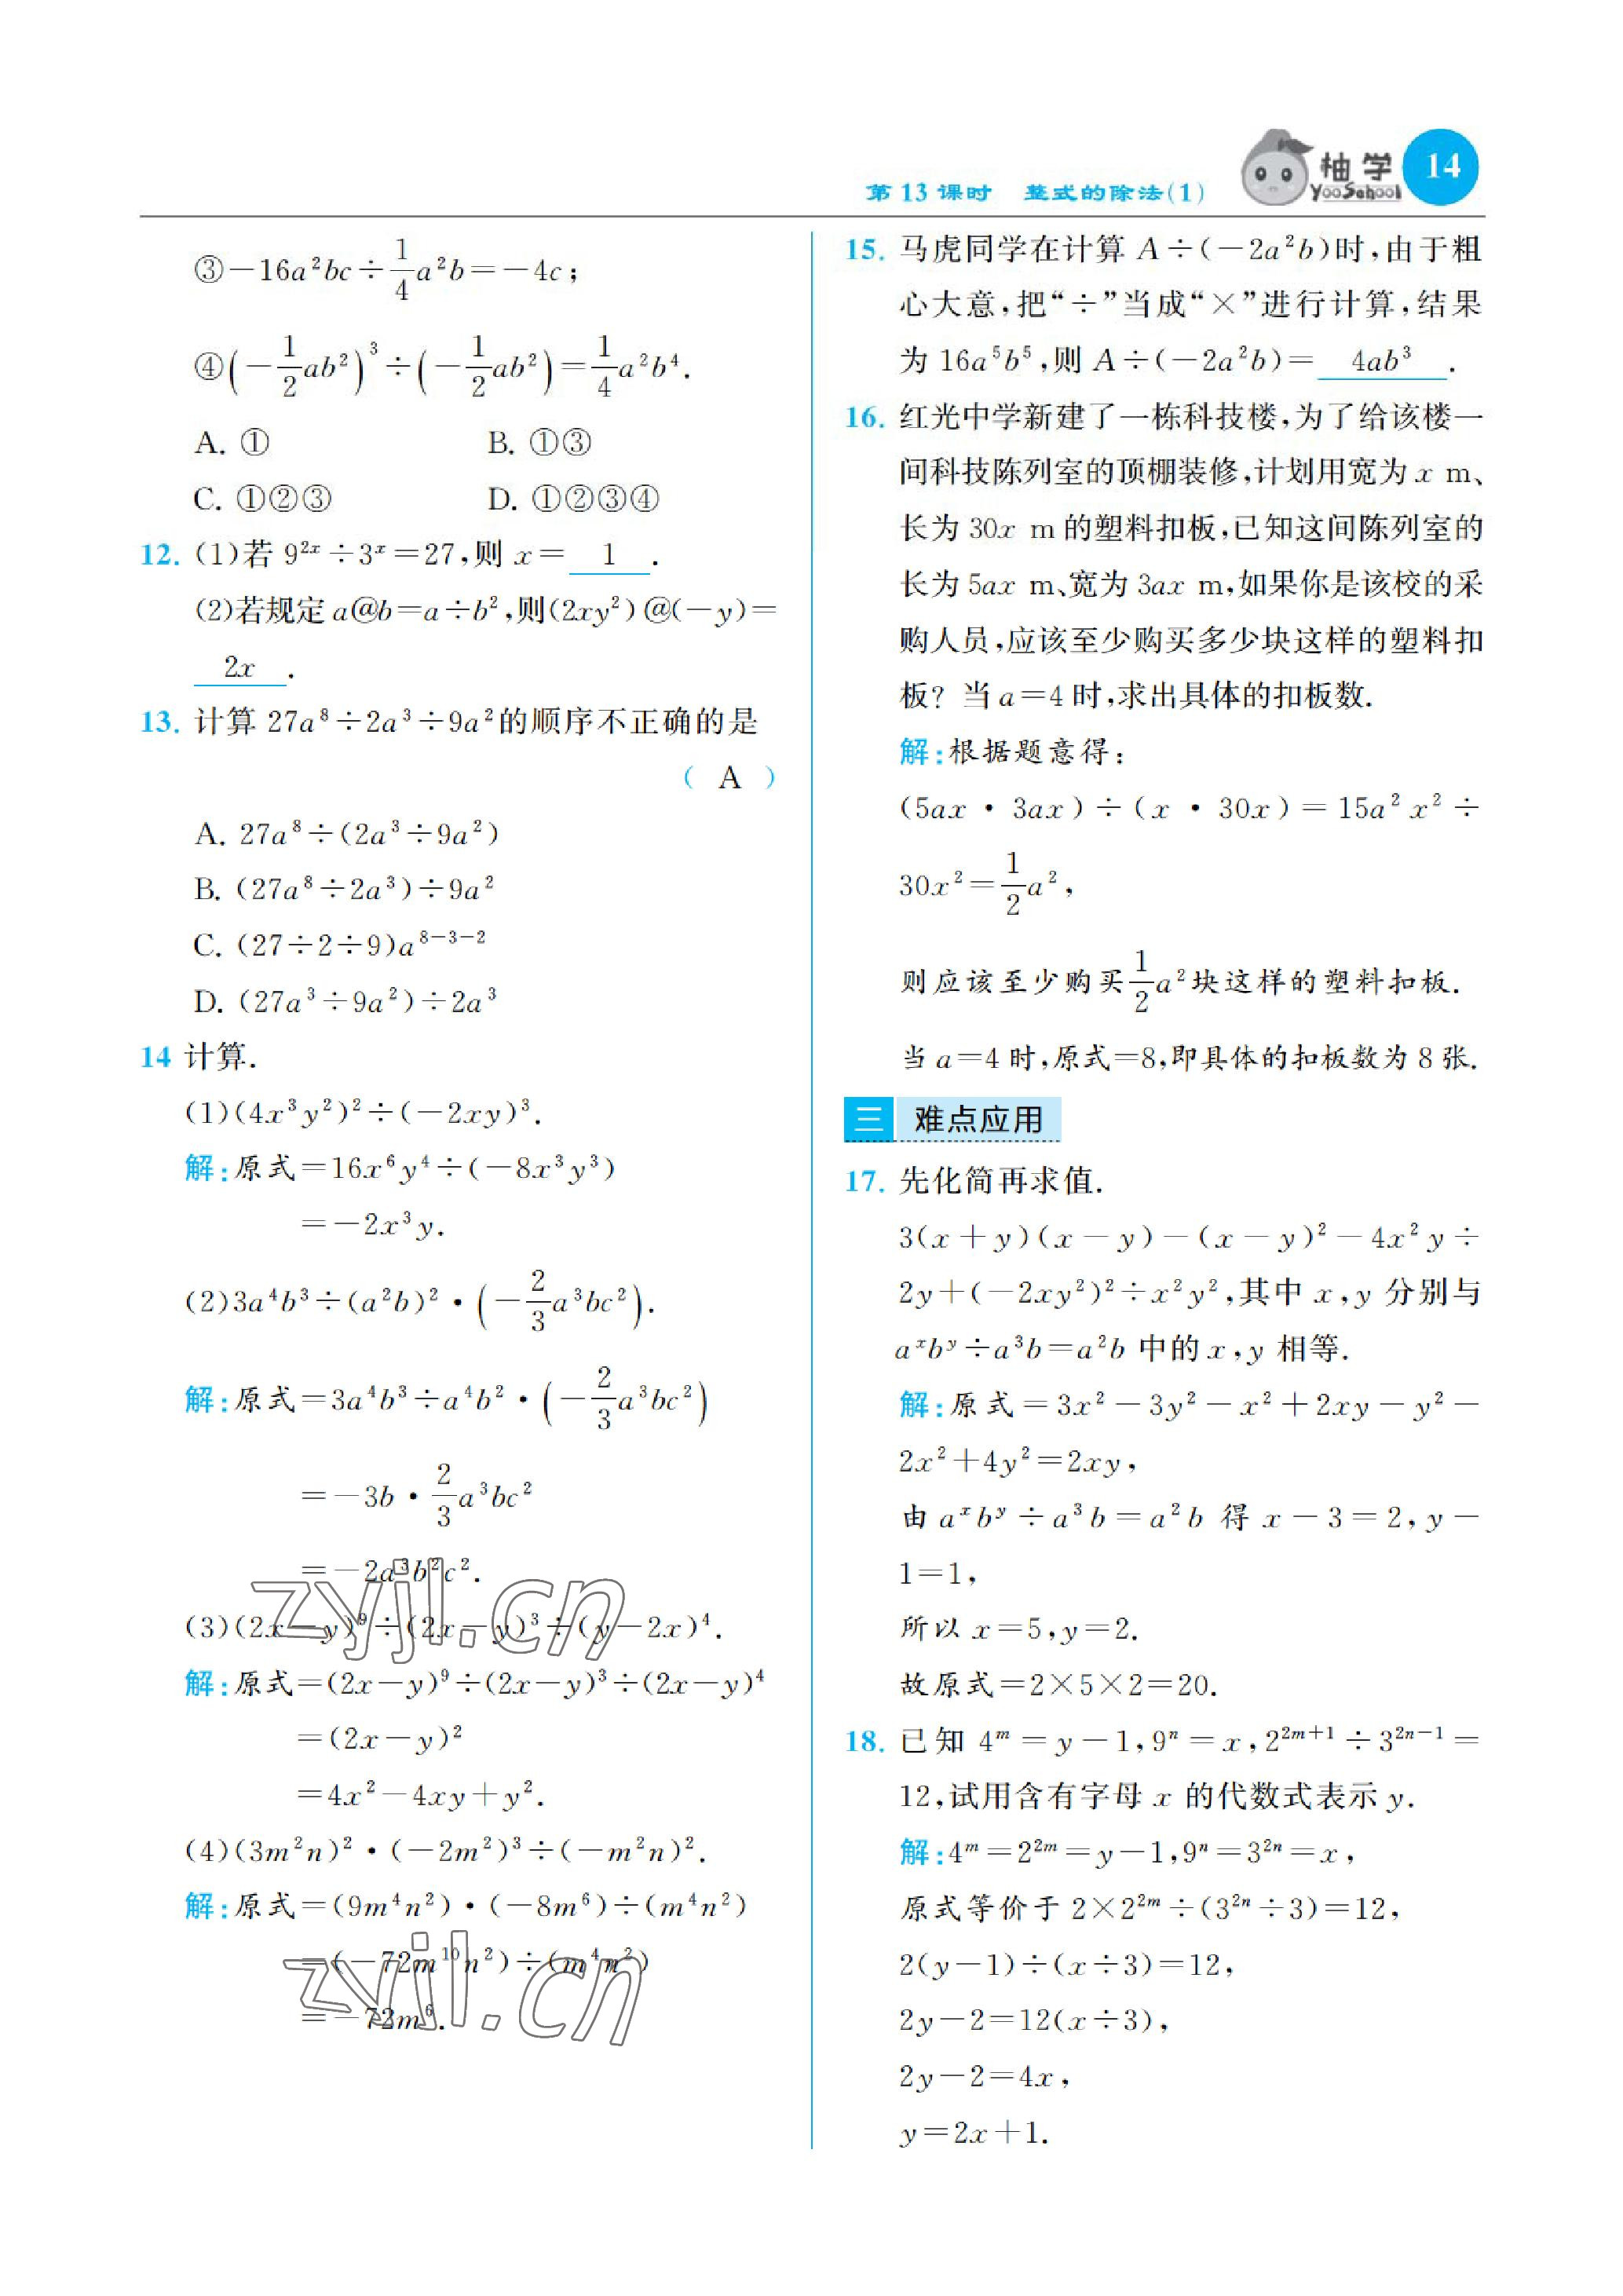 第 13 课时　整式的除法(1)
柚学
YooSchool
14
③－16a²bc÷1/4a²b＝－4c;
④(－1/2ab²)³÷(－1/2ab²)＝1/4a²b⁴.
A. ①　B. ①③
C. ①②③　D. ①②③④
12. (1)若 9²ˣ÷3ˣ＝27,则 x＝ 1 .
(2)若规定 a@b＝a÷b²,则(2xy²)@(－y)＝
2x .
13. 计算 27a⁸÷2a³÷9a²的顺序不正确的是
( A )
A. 27a⁸÷(2a³÷9a²)
B. (27a⁸÷2a³)÷9a²
C. (27÷2÷9)a⁸⁻³⁻²
D. (27a³÷9a²)÷2a³
14 计算.
(1)(4x³y²)²÷(－2xy)³.
解:原式＝16x⁶y⁴÷(－8x³y³)
＝－2x³y.
(2)3a⁴b³÷(a²b)²·(－2/3a³bc²).
解:原式＝3a⁴b³÷a⁴b²·(－2/3a³bc²)
＝－3b·2/3a³bc²
＝－2a³b²c².
(3)(2x－y)⁹÷(2x－y)³÷(y－2x)⁴.
解:原式＝(2x－y)⁹÷(2x－y)³÷(2x－y)⁴
＝(2x－y)²
＝4x²－4xy＋y².
(4)(3m²n)²·(－2m²)³÷(－m²n)².
解:原式＝(9m⁴n²)·(－8m⁶)÷(m⁴n²)
＝(－72m¹⁰n²)÷(m⁴n²)
＝－72m⁶.
15. 马虎同学在计算 A÷(－2a²b)时,由于粗
心大意,把“÷”当成“×”进行计算,结果
为 16a⁵b⁵,则 A÷(－2a²b)＝ 4ab³ .
16. 红光中学新建了一栋科技楼,为了给该楼一
间科技陈列室的顶棚装修,计划用宽为 x m、
长为 30x m 的塑料扣板,已知这间陈列室的
长为 5ax m、宽为 3ax m,如果你是该校的采
购人员,应该至少购买多少块这样的塑料扣
板? 当 a＝4 时,求出具体的扣板数.
解:根据题意得:
(5ax·3ax)÷(x·30x)＝15a²x²÷
30x²＝1/2a²,
则应该至少购买1/2a²块这样的塑料扣板.
当 a＝4 时,原式＝8,即具体的扣板数为 8 张.
三 难点应用
17. 先化简再求值.
3(x＋y)(x－y)－(x－y)²－4x²y÷
2y＋(－2xy²)²÷x²y²,其中 x,y 分别与
aˣbʸ÷a³b＝a²b 中的 x,y 相等.
解:原式＝3x²－3y²－x²＋2xy－y²－
2x²＋4y²＝2xy,
由 aˣbʸ÷a³b＝a²b 得 x－3＝2,y－
1＝1,
所以 x＝5,y＝2.
故原式＝2×5×2＝20.
18. 已知 4ᵐ＝y－1,9ⁿ＝x,2²ᵐ⁺¹÷3²ⁿ⁻¹＝
12,试用含有字母 x 的代数式表示 y.
解:4ᵐ＝2²ᵐ＝y－1,9ⁿ＝3²ⁿ＝x,
原式等价于 2×2²ᵐ÷(3²ⁿ÷3)＝12,
2(y－1)÷(x÷3)＝12,
2y－2＝12(x÷3),
2y－2＝4x,
y＝2x＋1.
zyjl.cn
zyjl.cn